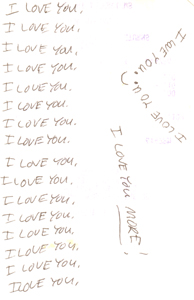 I LOVE YOU,
I LOVE YOU.
I LOVE YOU,
I LOVE YOU,
I LOVE YOU.
I LOVE YOU.
I LOVE YOU.
I LOVE YOU.
I LOVE YOU,
I LOVE YOU,
I LOVE YOU,
I LOVE YOU,
I LOVE YOU,
I LOVE YOU,
I LOVE YOU,
I LOVE YOU,
I LOVE YOU.
I LOVE YOU
I LOVE YOU MORE!